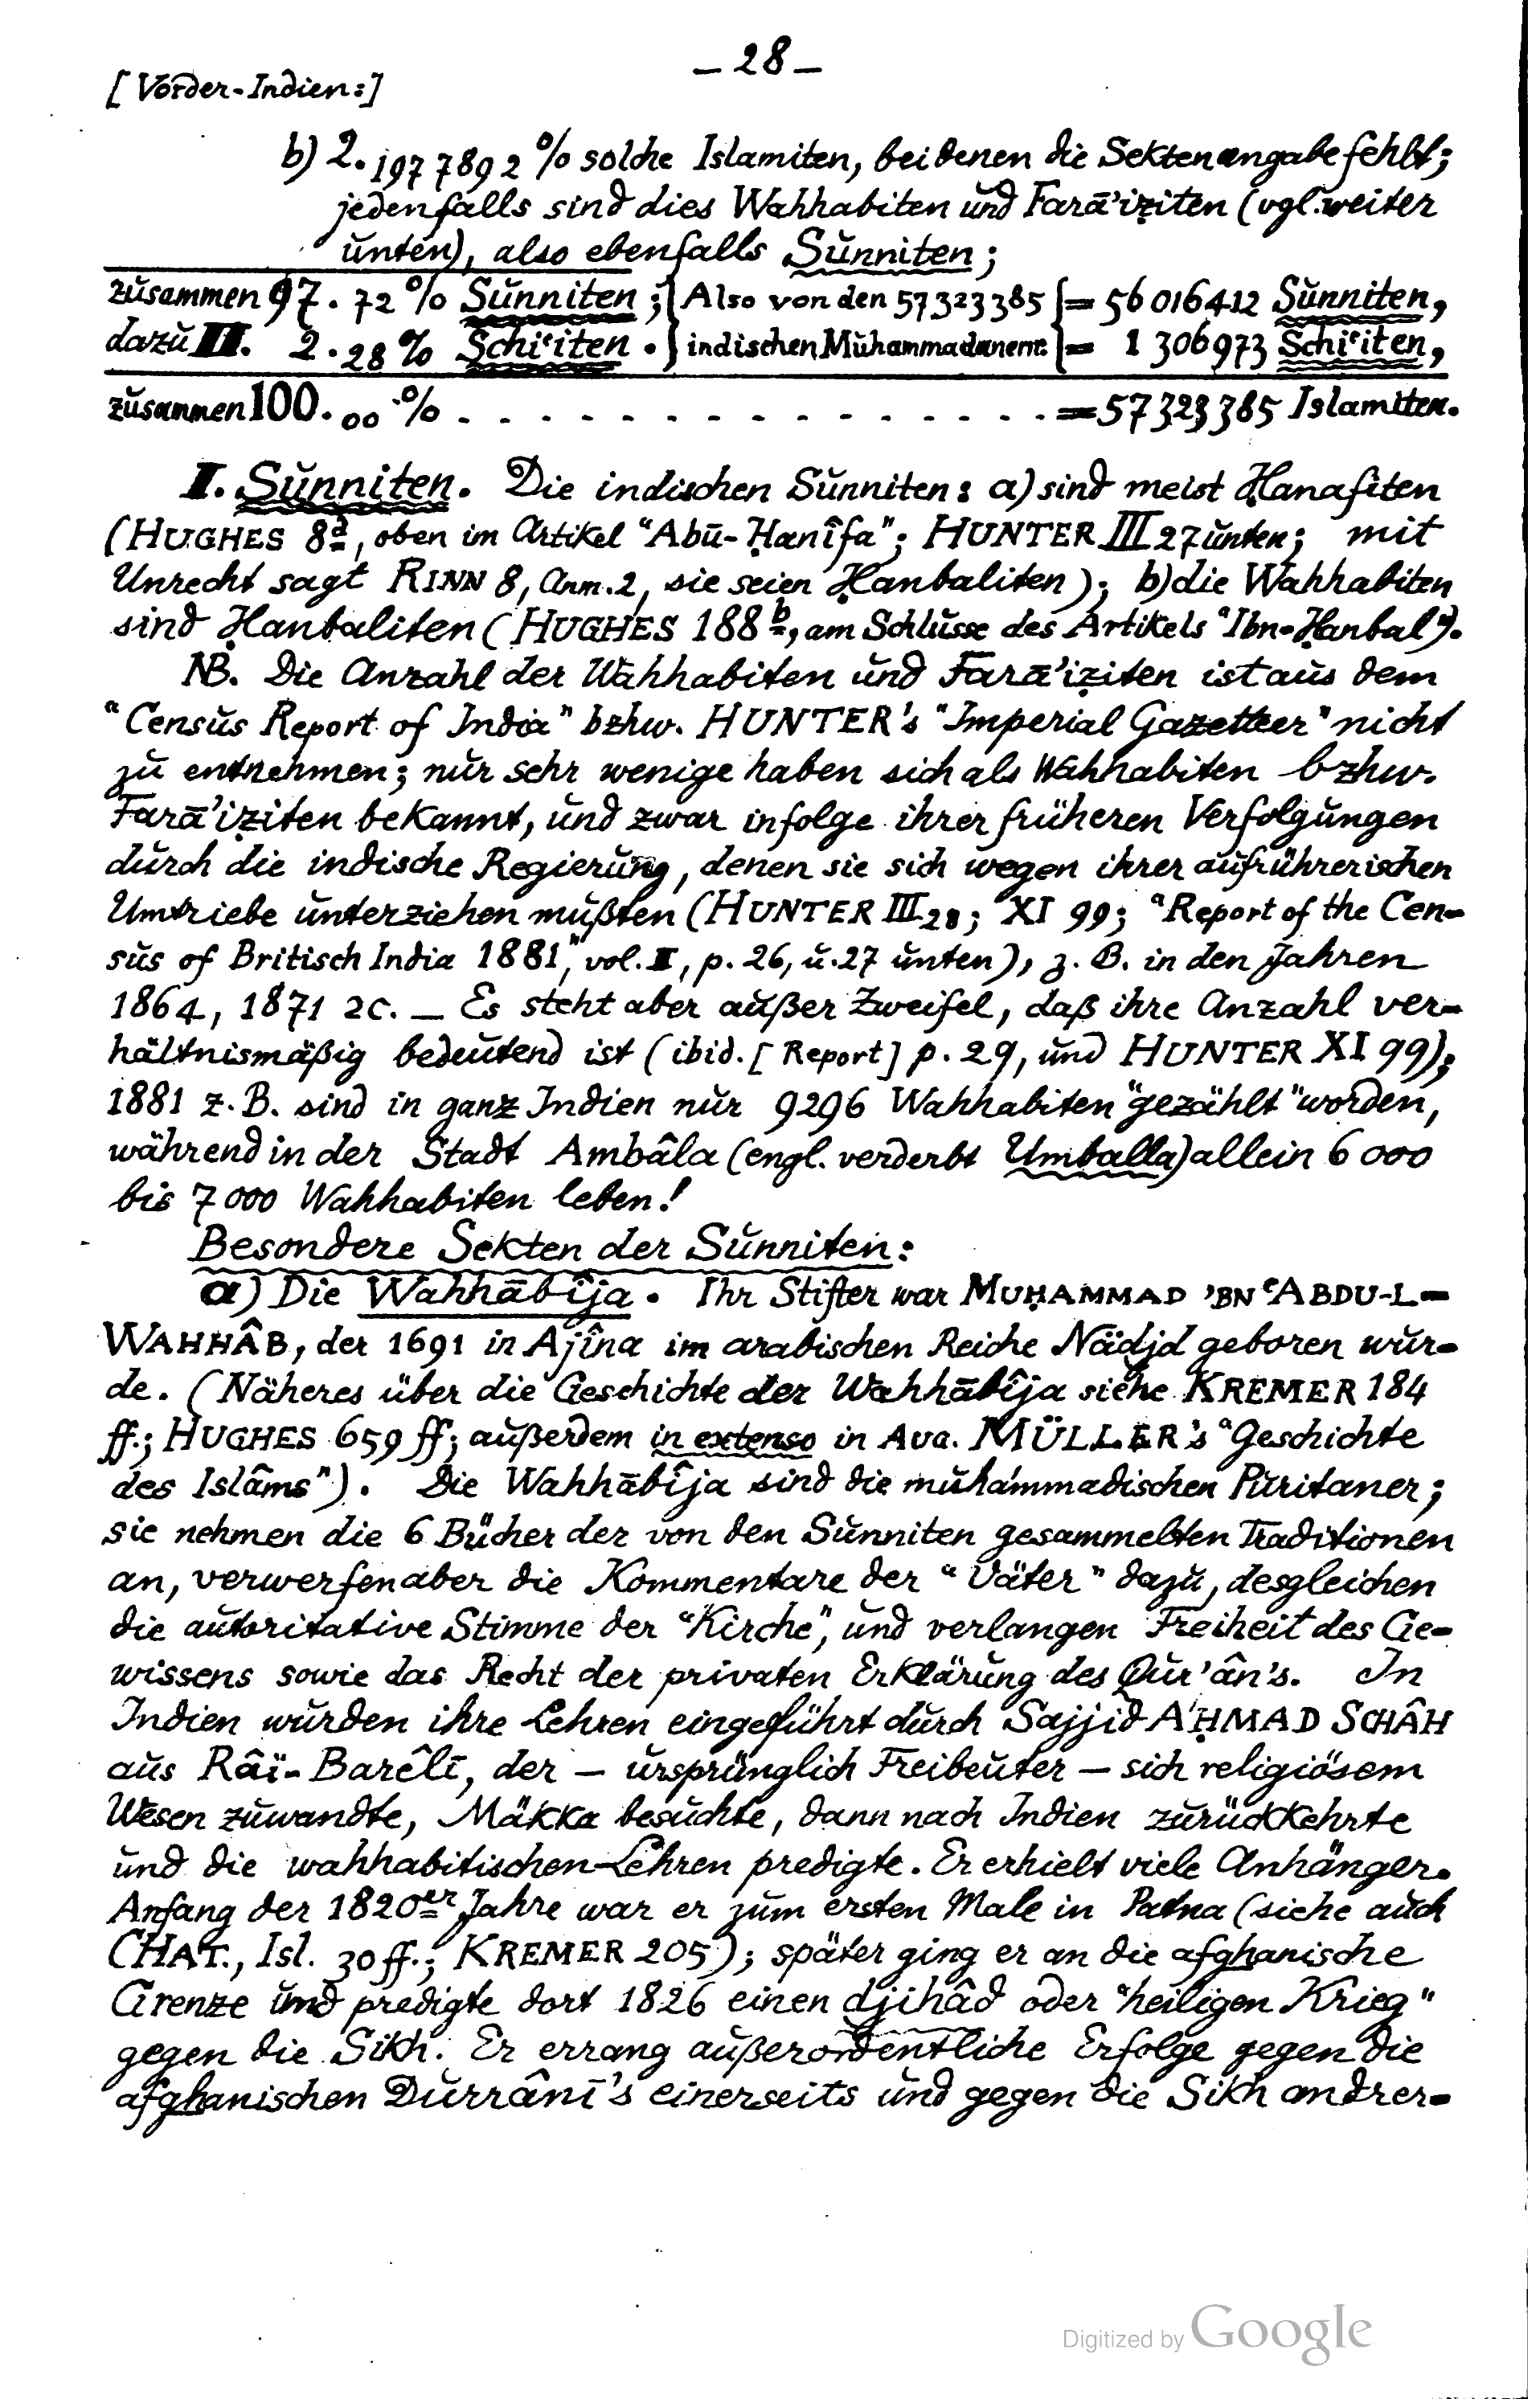 – 28 –
[Vorder-Indien:]
b) 2.1977892 % solche Islamiten, bei denen die Sektenangabe fehlt;
jedenfalls sind dies Wahhabiten und Farā'iẓiten (vgl. weiter
unten), also ebenfalls Sunniten;
zusammen 97.72 % Sunniten; } Also von den 57323385 { = 56016412 Sunniten,
dazu II. 2.28 % Schi'iten. } indischen Muhammadanern: { = 1306973 Schi'iten,
zusammen 100.00 % . . . . . . . . . . . . . . . = 57323385 Islamiten.
I. Sunniten. Die indischen Sunniten: a) sind meist Ḥanafiten
(HUGHES 8d, oben im Artikel "Abū-Ḥanîfa"; HUNTER III 27 unten; mit
Unrecht sagt RINN 8, Anm. 2, sie seien Ḥanbaliten); b) die Wahhabiten
sind Ḥanbaliten (HUGHES 188b, am Schlusse des Artikels "Ibn-Ḥanbal").
NB. Die Anzahl der Wahhabiten und Farā'iẓiten ist aus dem
"Census Report of India" bzhw. HUNTER's "Imperial Gazetteer" nicht
zu entnehmen; nur sehr wenige haben sich als Wahhabiten bzhw.
Farā'iẓiten bekannt, und zwar infolge ihrer früheren Verfolgungen
durch die indische Regierung, denen sie sich wegen ihrer aufrührerischen
Umtriebe unterziehen mußten (HUNTER III 28; XI 99; "Report of the Cen-
sus of Britisch India 1881," vol. II, p. 26, u. 27 unten), z. B. in den Jahren
1864, 1871 2c. – Es steht aber außer Zweifel, daß ihre Anzahl ver-
hältnismäßig bedeutend ist (ibid. [Report] p. 29, und HUNTER XI 99);
1881 z. B. sind in ganz Indien nur 9296 Wahhabiten "gezählt" worden,
während in der Stadt Ambâla (engl. verderbt Umballa) allein 6000
bis 7000 Wahhabiten leben!
Besondere Sekten der Sunniten:
a) Die Wahhābîja. Ihr Stifter war MUḤAMMAD 'BN ʿABDU-L-
WAHHÂB, der 1691 in Ajîna im arabischen Reiche Nädjd geboren wur-
de. (Näheres über die Geschichte der Wahhābîja siehe KREMER 184
ff.; HUGHES 659 ff; außerdem in extenso in Aug. MÜLLER's "Geschichte
des Islâms"). Die Wahhābîja sind die muhammadischen Puritaner;
sie nehmen die 6 Bücher der von den Sunniten gesammelten Traditionen
an, verwerfen aber die Kommentare der "Väter" dazu, desgleichen
die autoritative Stimme der "Kirche", und verlangen Freiheit des Ge-
wissens sowie das Recht der privaten Erklärung des Qur'ân's. In
Indien wurden ihre Lehren eingeführt durch Sajjid AḤMAD SCHÂH
aus Râï-Barêlī, der – ursprünglich Freibeuter – sich religiösem
Wesen zuwandte, Mäkka besuchte, dann nach Indien zurückkehrte
und die wahhabitischen Lehren predigte. Er erhielt viele Anhänger.
Anfang der 1820er Jahre war er zum ersten Male in Patna (siehe auch
CHAT., Isl. 30 ff.; KREMER 205); später ging er an die afghanische
Grenze und predigte dort 1826 einen djihâd oder "heiligen Krieg"
gegen die Sikh. Er errang außerordentliche Erfolge gegen die
afghanischen Durrânī's einerseits und gegen die Sikh andrer-
Digitized by Google